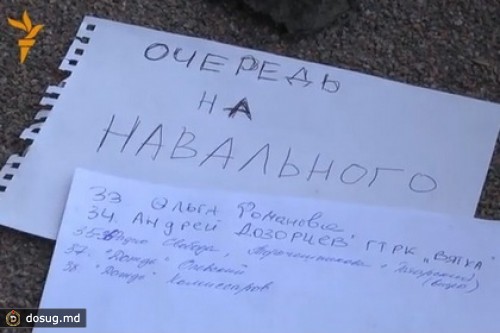 ОЧЕРЕДЬ
НА
НАВАЛЬНОГО
33 Ольга Романова
34. АНДРЕЙ ДОЗОРЦЕВ ГТРК „ВЯТКА"
35. Радио Свобода,
37. "Дождь"
38. "Дождь" Комиссаров
dosug.md